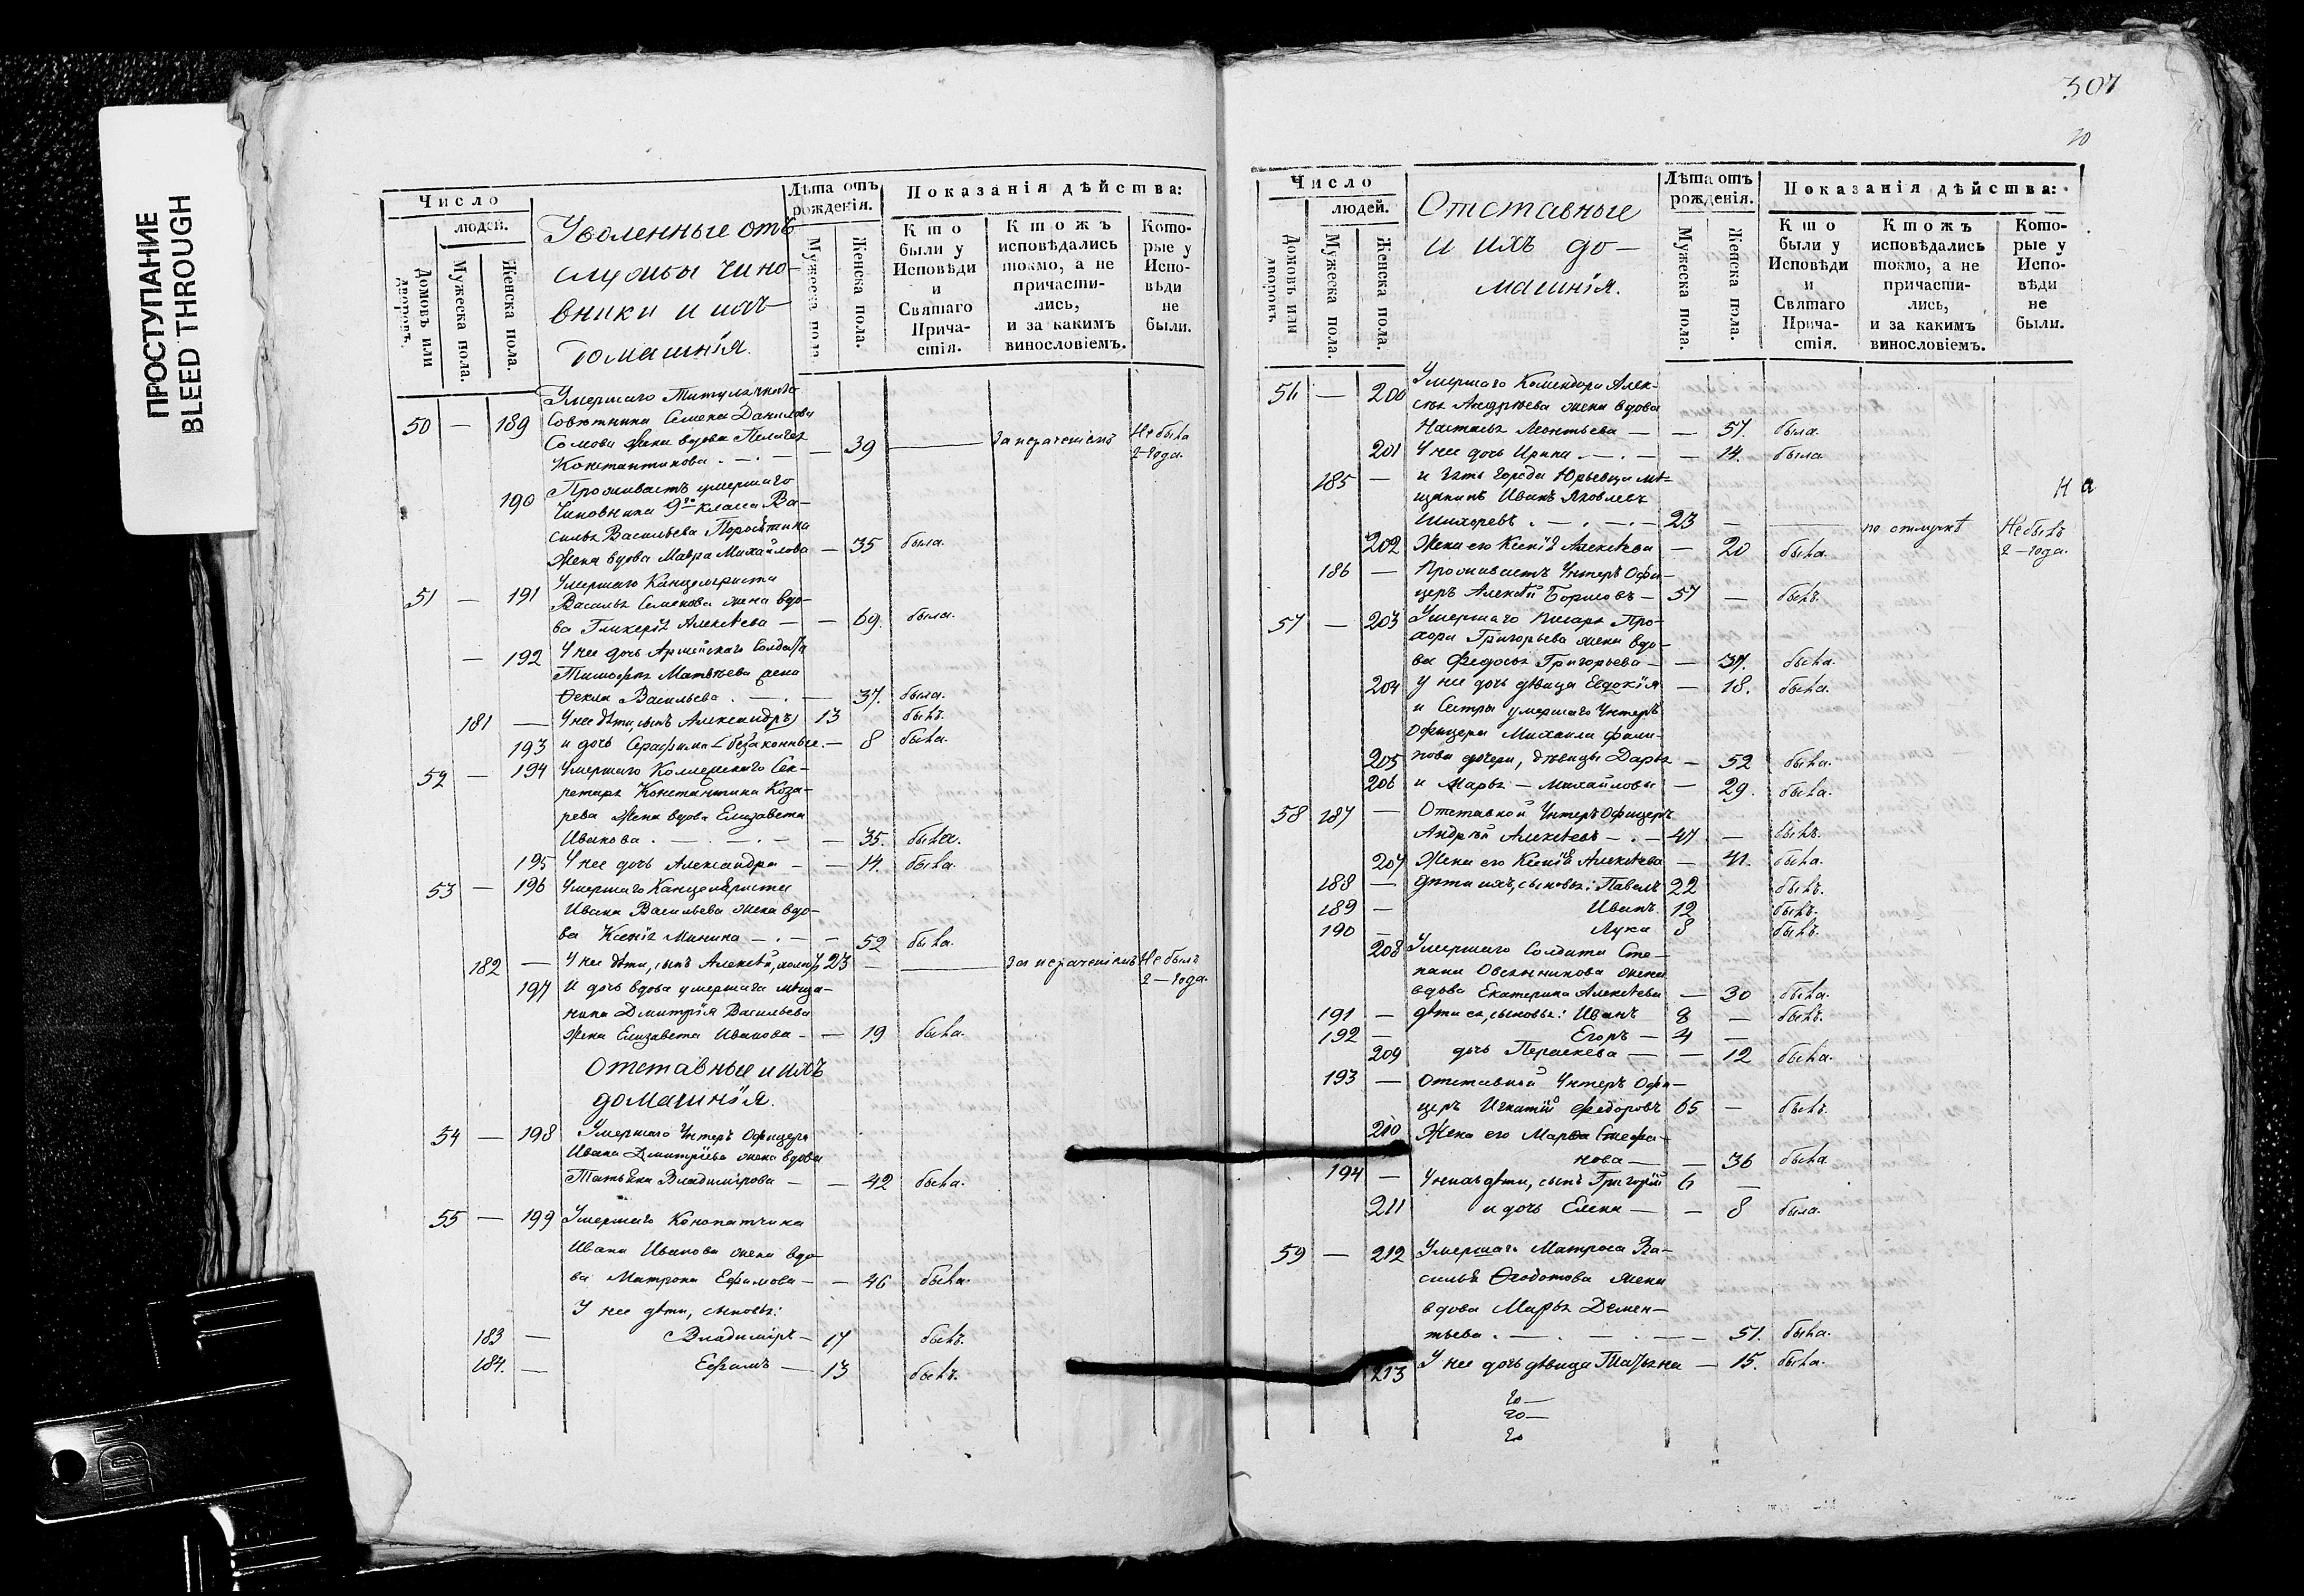 ПРОСТУПАНИЕ
BLEED THROUGH
Число
людей.
Домовъ или дворовъ.
Мужеска пола.
Женска пола.
Уволенные отъ
службы чино-
вники и ихъ
домашнія.
Лѣта отъ рожденія.
Мужеска пола.
Женска пола.
Показанія дѣйства:
Кто были у Исповѣди и Святаго Причастія.
Ктожъ исповѣдались токмо, а не причастились, и за какимъ винословіемъ.
Которые у Исповѣди не были.
Умершаго Титулярнаго
50 — 189 Совѣтника Семена Данилова
Сомова жена вдова Пелагея
Константинова — 39 — за нераченіемъ Не была 2 года.
190 Проживаетъ умершаго
Чиновника 9го класса Ва-
силья Васильева
Жена вдова Мавра Михайлова — 35 была.
Умершаго Канцеляриста
51 — 191 Василья Семенова жена вдо-
ва Гликерія Алексѣева — 69. была.
— 192 У нее дочь Армейскаго Солдата
Тимофея Матвѣева жена
Ѳекла Васильева — 37. была.
181 — У нее дѣти, сынъ Александръ 13 былъ.
193 и дочь Серафима незаконные. — 8 была.
52 — 194 Умершаго Коллежскаго Сек-
ретаря Константина Коза-
рева Жена вдова Елизавета
Иванова — 35. была.
195 У нее дочь Александра — 14. была.
53 — 196 Умершаго Канцеляриста
Ивана Васильева жена вдо-
ва Ксенія Минина — 52 была.
182 — У нее дѣти, сынъ Алексѣй, холостъ 23 — за нераченіемъ Не былъ 2 — года.
197 И дочь вдова умершаго мѣща-
нина Дмитрія Васильева
Жена Елизавета Иванова — 19 была.
Отставные и ихъ
домашнія.
54 — 198 Умершаго Унтеръ Офицера
Ивана Дмитріева жена вдова
Татьяна Владимірова — 42 была.
55 — 199 Умершаго Конопатчика
Ивана Иванова жена вдо-
ва Матрона Ефимова — 46 была.
У нее дѣти, сыновья:
183 — Владиміръ — 17 былъ.
184. — Ефимъ — 13 былъ.
307
20
Число
людей.
Домовъ или дворовъ.
Мужеска пола.
Женска пола.
Отставные
и ихъ до-
машнія.
Лѣта отъ рожденія.
Мужеска пола.
Женска пола.
Показанія дѣйства:
Кто были у Исповѣди и Святаго Причастія.
Ктожъ исповѣдались токмо, а не причастились, и за какимъ винословіемъ.
Которые у Исповѣди не были.
56 — 200 Умершаго Комендора Алек-
сѣя Андреева жена вдова
Настасья Леонтьева — 57. была.
201 У нее дочь Ирина — 14. была.
185 — и зять города Юрьевца мѣ-
щанинъ Иванъ Яковлевъ
Шихоревъ — 23 — по отлучкѣ Не былъ 2 — года.
На
202 Жена его Ксенія Алексѣева — 20 была.
186 — Проживаетъ Унтеръ Офи-
церъ Алексѣй Борисовъ — 57 — былъ.
57 — 203 Умершаго Писаря Про-
хора Григорьева жена вдо-
ва Федосья Григорьева — 37. была.
204 У нее дочь дѣвица Евдокія — 18. была.
и Сестры умершаго Унтеръ
Офицера Михаила Фили-
205 пова дочери, дѣвицы Дарья — 52 была.
206 и Марья — Михайловы — 29. была.
58 187 — Отставной Унтеръ Офицеръ
Андрѣй Алексѣевъ — 47 — былъ.
207 Жена его Ксенія Алексѣева — 41. была.
188 — Дѣти ихъ, сыновья: Павелъ 22 былъ.
189 — Иванъ. 12 былъ.
190 — Лука 8 былъ.
208 Умершаго Солдата Сте-
пана Овсянникова жена
вдова Екатерина Алексѣева — 30 была.
191 — Дѣти ея, сыновья: Иванъ 8 — былъ.
192 — Егоръ — 4 —
209 дочь Параскева — 12 была.
193 — Отставной Унтеръ Офи-
церъ Игнатій Федоровъ 65 — былъ.
210 Жена его Марѳа Стефа-
нова — 36 была.
194 — У нихъ дѣти, сынъ Григорій 6 —
211 и дочь Елена — 8 была.
59 — 212 Умершаго Матроса Ва-
силья Ѳеодотова жена
вдова Марья Демен-
тьева — 51. была.
213 У нее дочь дѣвица Татьяна — 15. была.